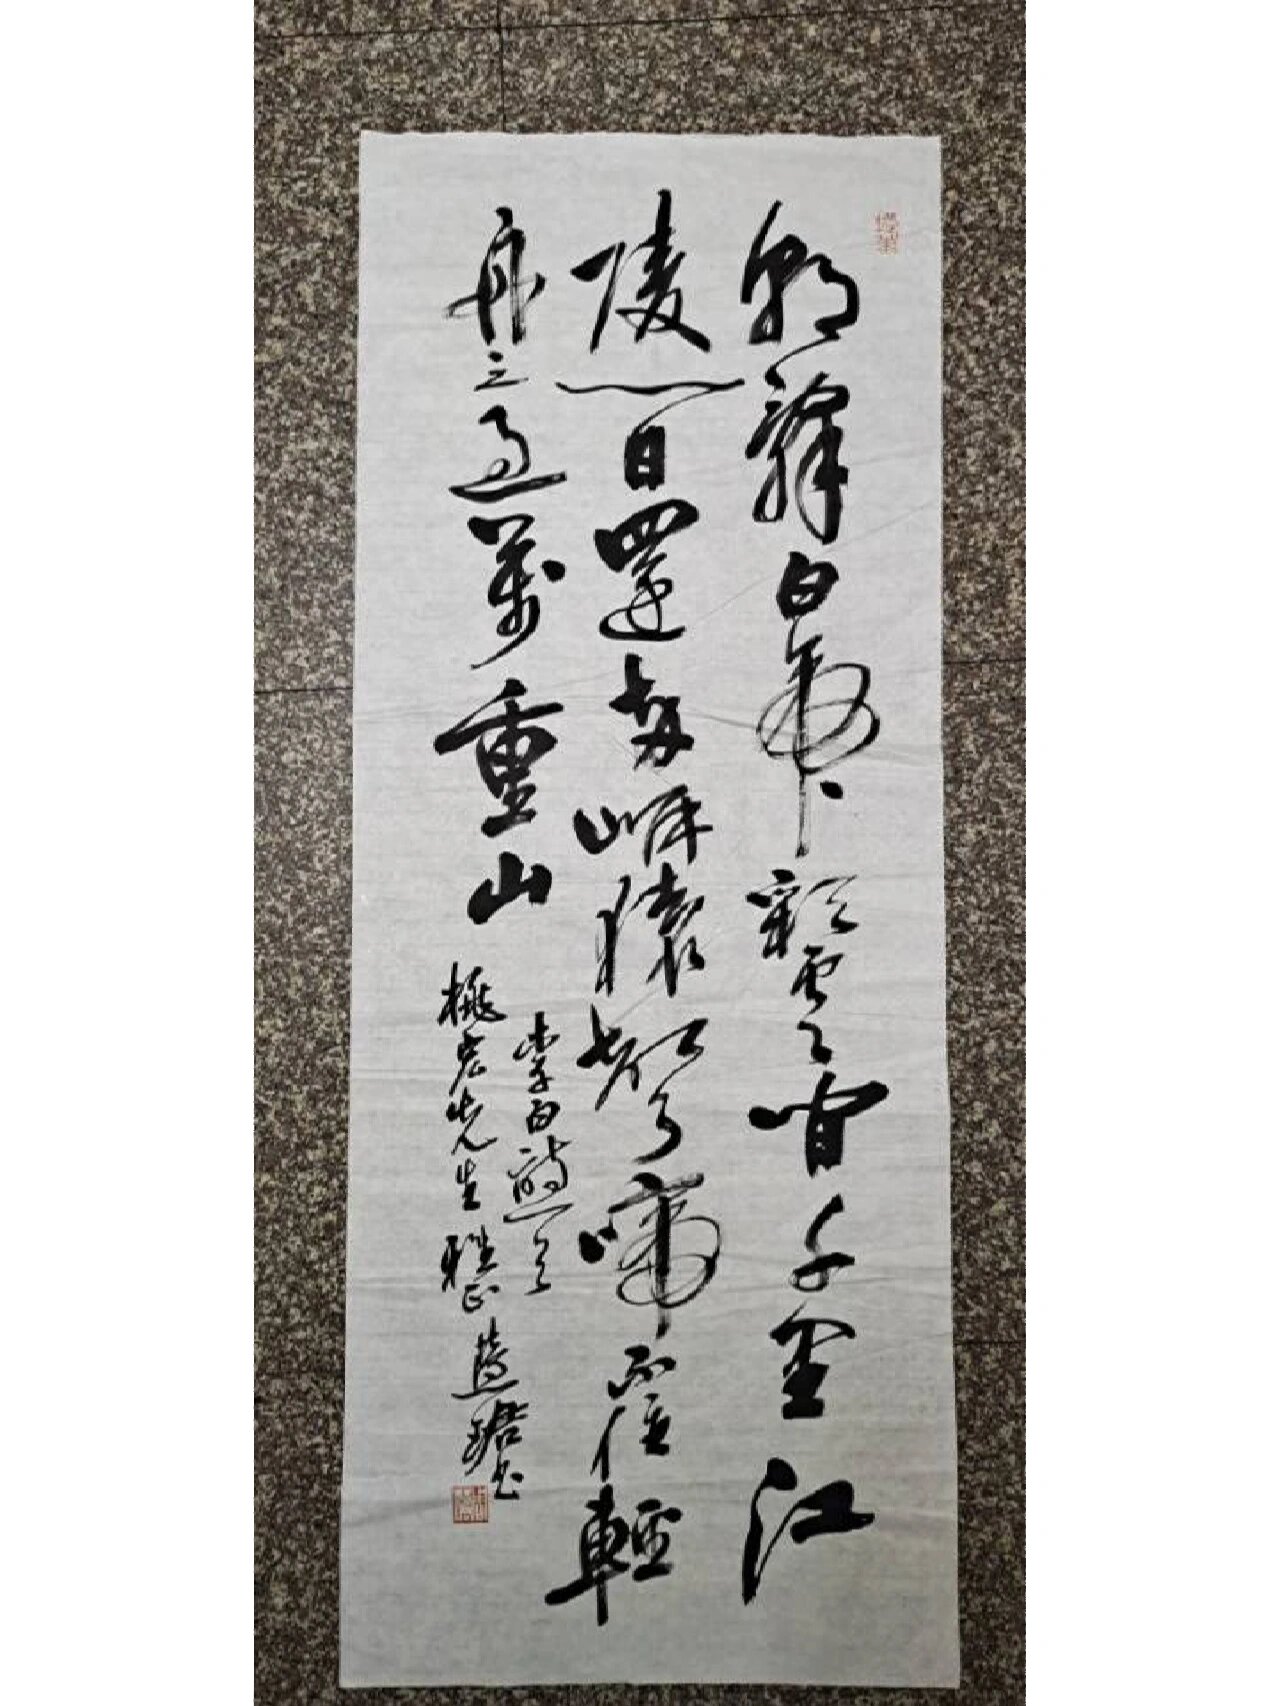 朝辭白帝彩雲間千里江
陵一日還兩岸猿聲啼不住輕
舟已過萬重山
李白詩一首
先生雅正 書